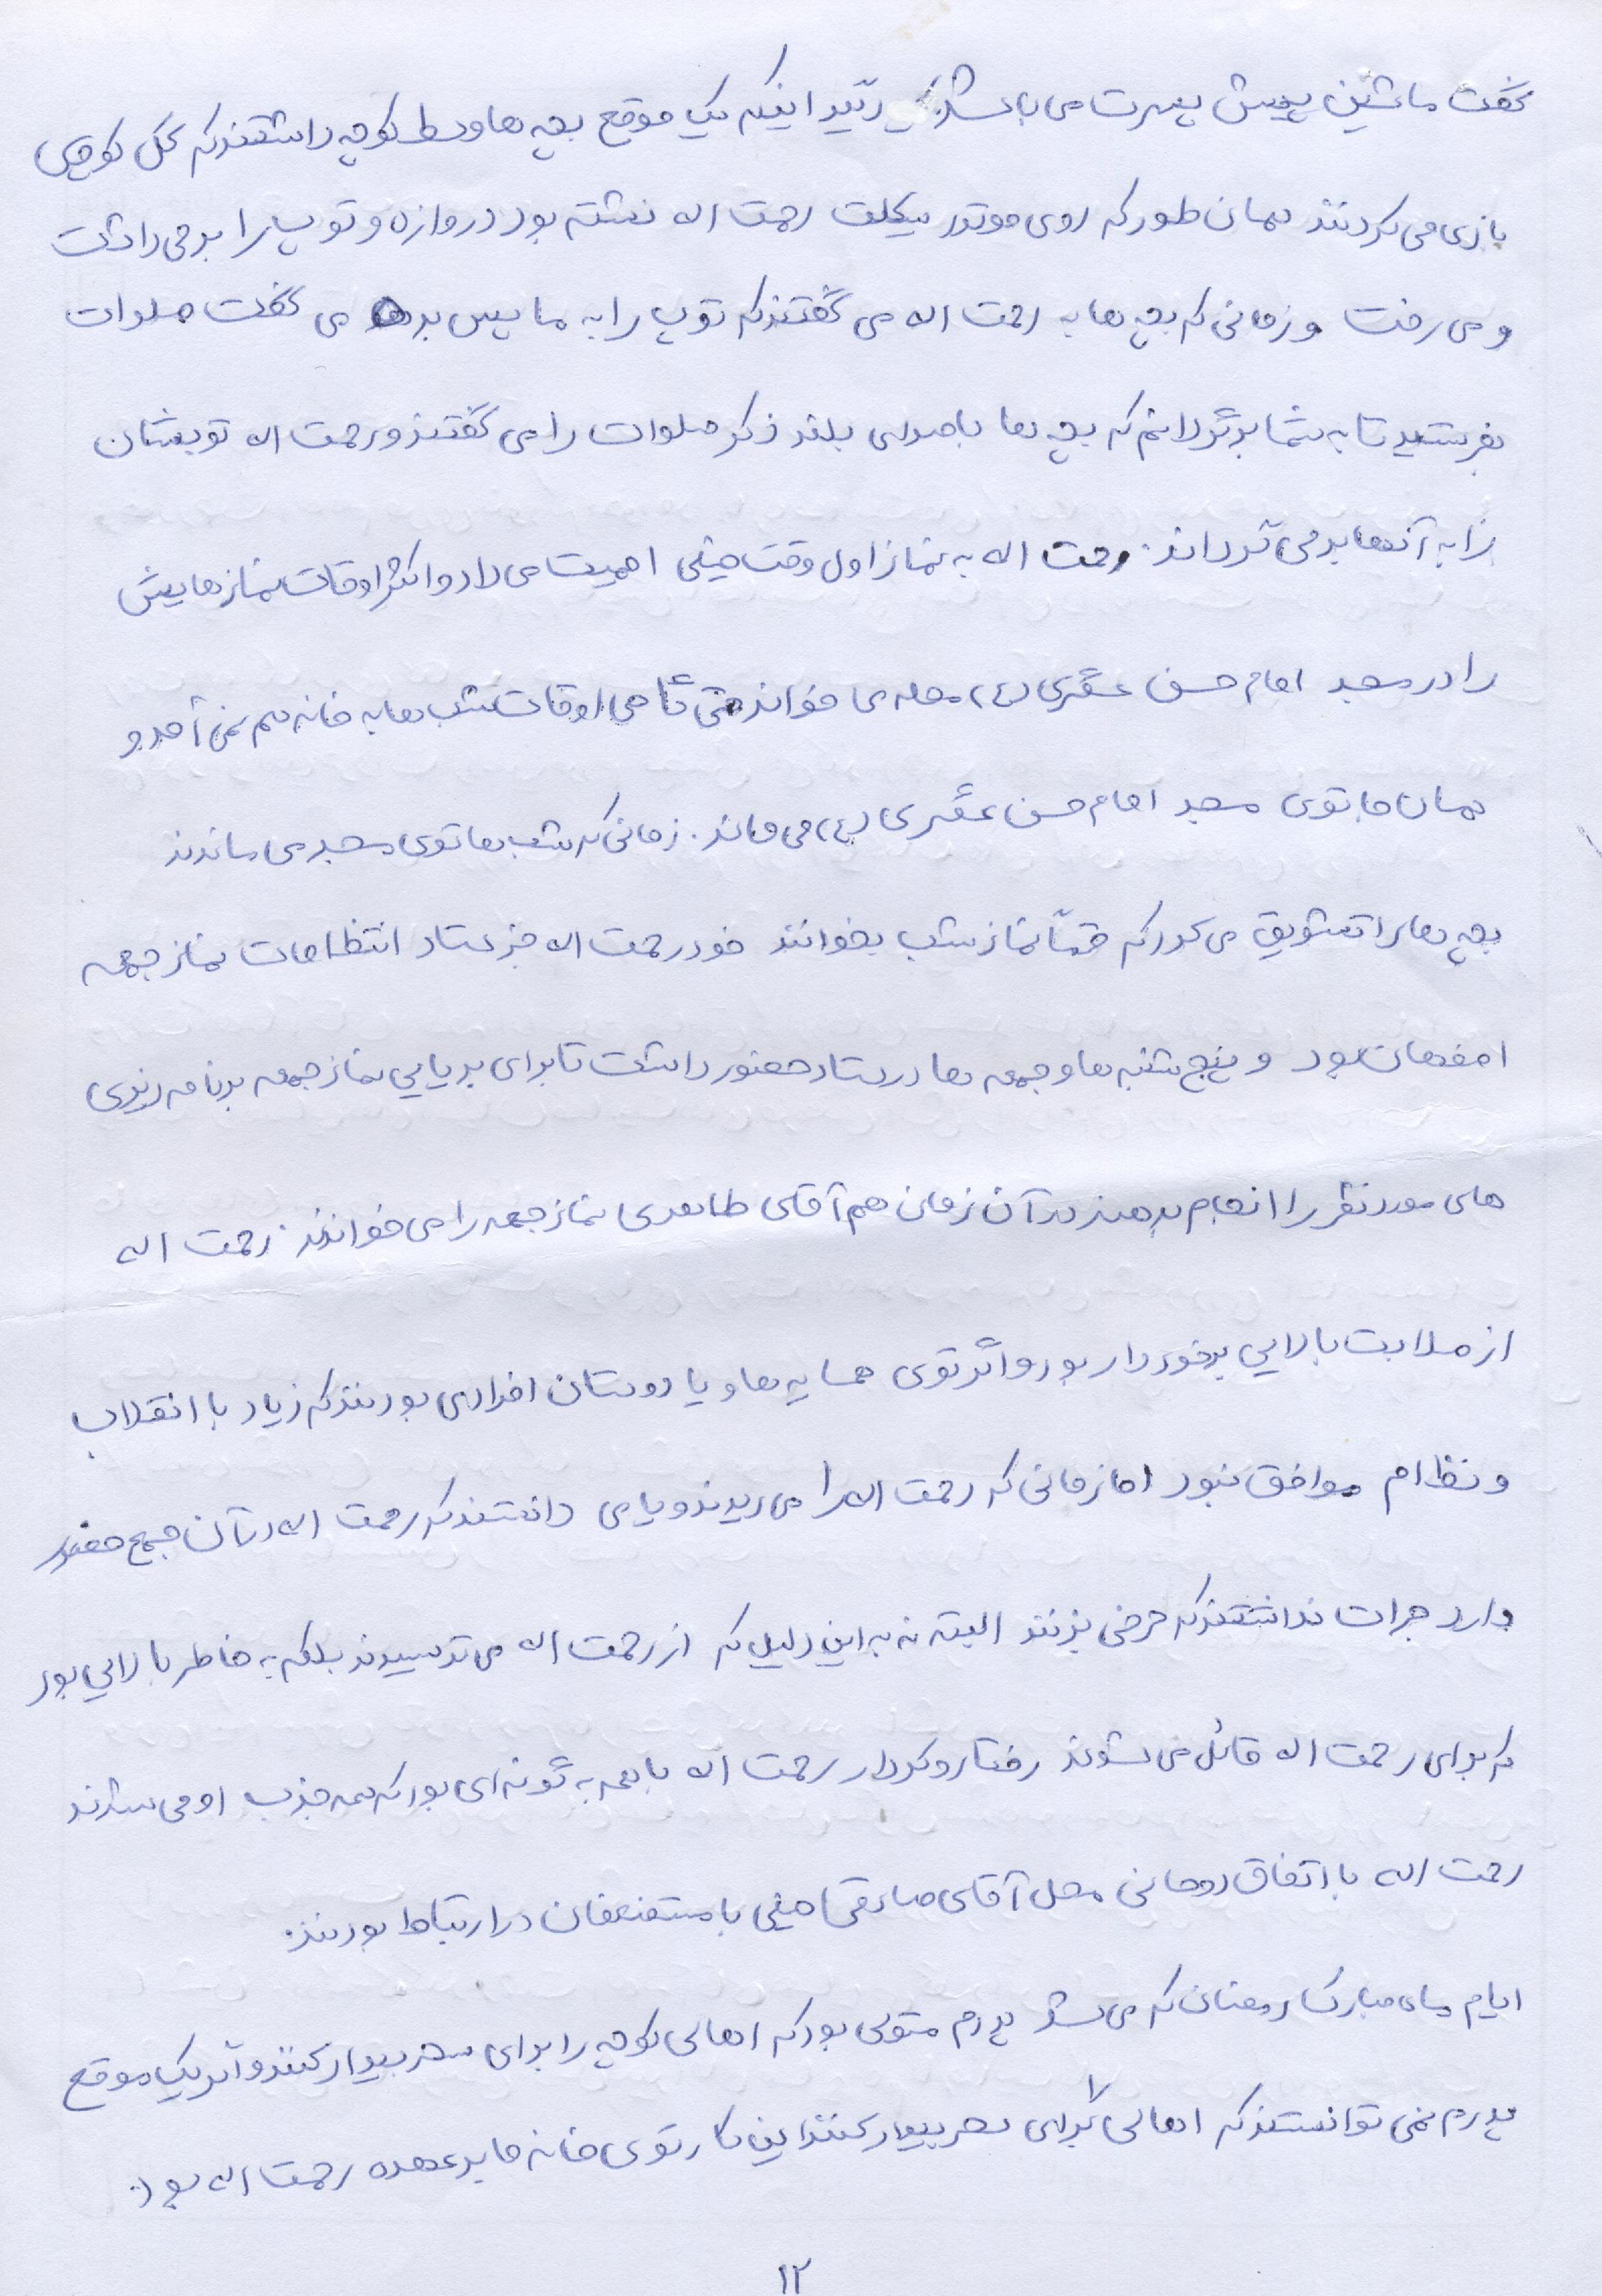 گفت ماشین پیش پسرت می باشد. دیگر اینکه یک موقع بچه ها وسط کوچه داشتند که گل کوچک
بازی می کردند همان طور که روی موتور سیکلت رحمت اله نشسته بود دروازه و توپ را بر می داشت
و می رفت و زمانی که بچه ها به رحمت اله می گفتند که توپ را به ما پس بده می گفت صلوات
بفرستید تا به شما برگردانم که بچه ها با صدای بلند ذکر صلوات را می گفتند و رحمت اله توپشان
را به آنها بر می گرداند. رحمت اله به نماز اول وقت خیلی اهمیت می داد و اکثر اوقات نمازهایش
را در مسجد امام حسن عسگری (ع) محله می خواند حتی گاهی اوقات شب ها به خانه هم نمی آمد و
همان جا توی مسجد امام حسن عسگری (ع) می ماند. زمانی که شب ها توی مسجد می ماندند
بچه ها را تشویق می کرد که حتماً نماز شب بخوانند خود رحمت اله جز ستاد انتظامات نماز جمعه
اصفهان بود و پنج شنبه ها و جمعه ها در ستاد حضور داشت تا برای برپایی نماز جمعه برنامه ریزی
های مورد نظر را انجام بدهند در آن زمان هم آقای طاهری نماز جمعه را می خواندند. رحمت اله
از صلابت بالایی برخوردار بود و اگر توی همسایه ها و یا دوستان افرادی بودند که زیاد با انقلاب
و نظام موافق نبود اما زمانی که رحمت اله را می دیدند و یا می دانستند که رحمت اله در آن جمع حضور
دارد جرات نداشتند که حرفی بزنند البته نه به این دلیل که از رحمت اله می ترسیدند بلکه به خاطر بالایی بود
که برای رحمت اله قائل می شوند رفتار و کردار رحمت اله با همه به گونه ای بود که همه جذب او می شدند
رحمت اله با اتفاق روحانی محل آقای صادقی خیلی با مستضعفان در ارتباط بودند.
ایام ماه مبارک رمضان که می شد پدرم متولی بود که اهالی کوچه را برای سحر بیدار کند و اگر یک موقع
پدرم نمی توانستند که اهالی را برای سحر بیدار کنند این کار توی خانه ما بر عهده رحمت اله بود.
۱۲